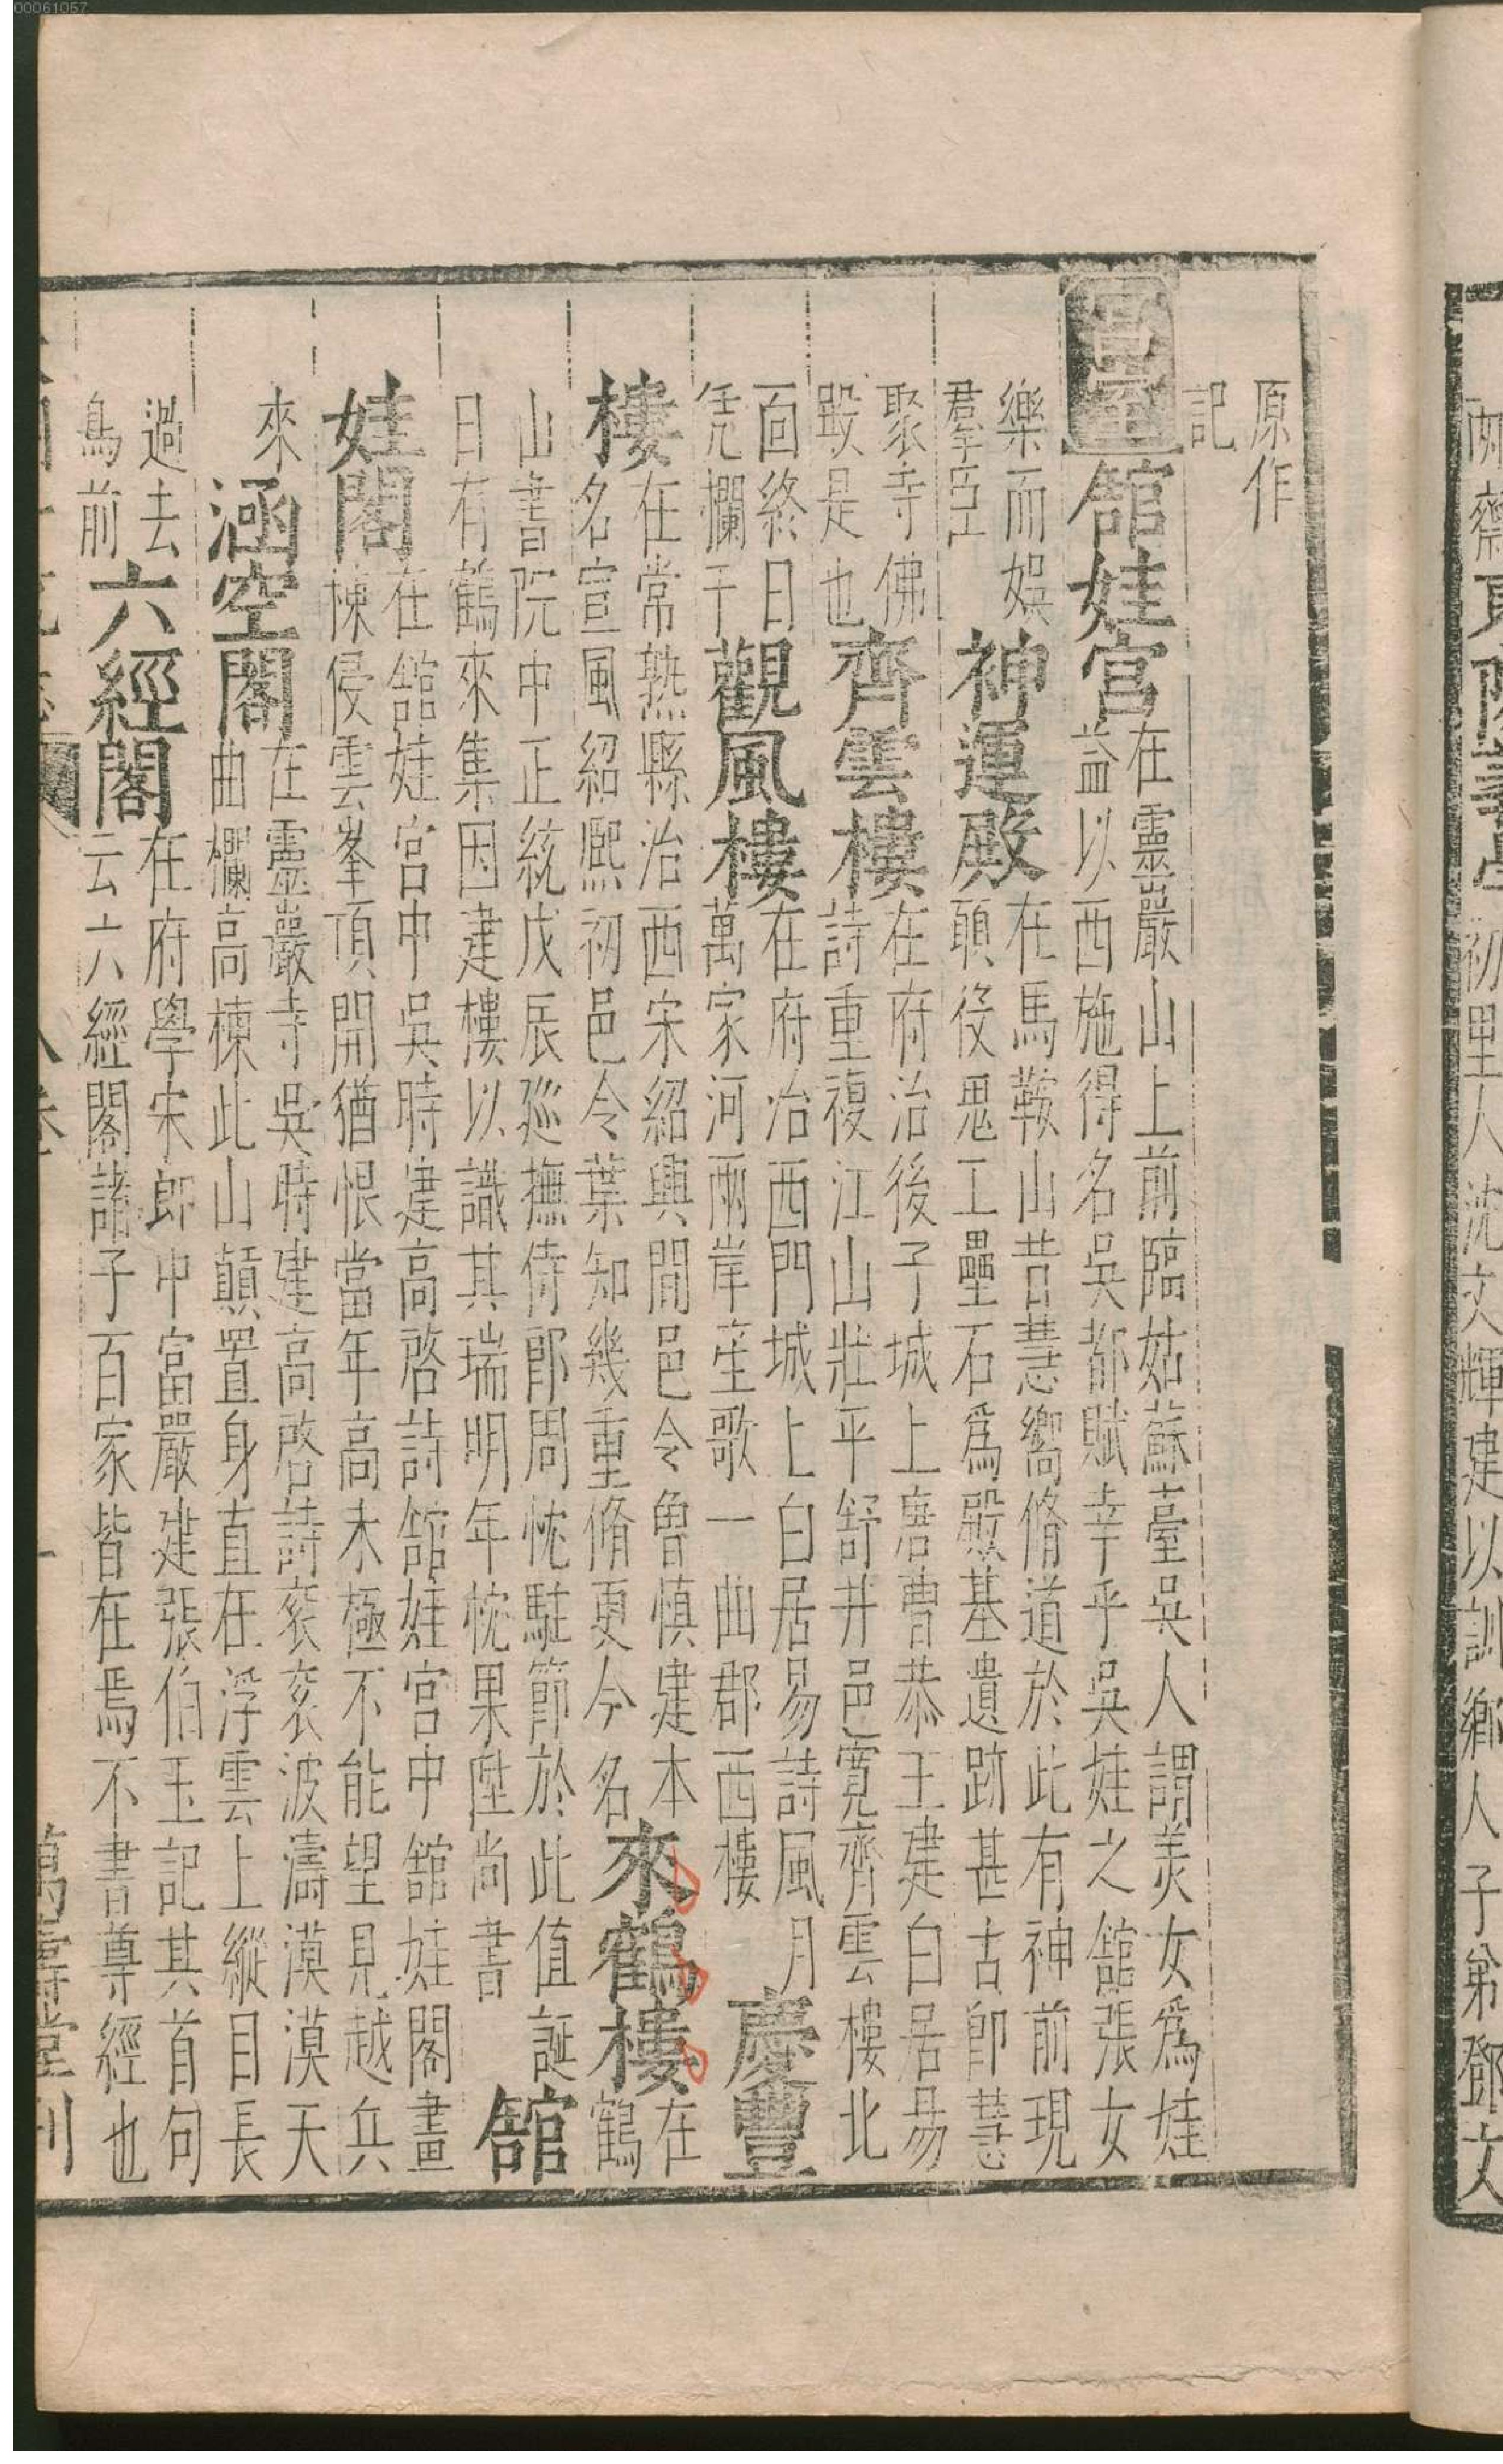 原作
記
宮室
舘娃宮
在靈巖山上前臨姑蘇臺吳人謂美女爲娃
葢以西施得名吳都賦幸乎吳娃之舘張女
樂而娛
羣臣
神運殿
在馬鞍山昔慧嚮脩道於此有神前現
願役鬼工壘石爲殿基遺跡甚古卽慧
聚寺佛
殿是也
齊雲樓
在府治後子城上唐曹恭王建白居昜
詩重複江山壯平舒井邑寛齊雲樓北
面終日
凭欄干
觀風樓
在府治西門城上白居易詩風月
萬家河兩岸笙歌一曲郡西樓
慶豐
樓
在常熟縣治西宋紹興間邑令魯慎建本
名宣風紹熈初邑令葉知幾重脩更今名
來鶴樓
在
鶴
山書院中正統戊辰廵撫侍郎周忱駐節於此值誕
日有鶴來集因建樓以識其瑞明年忱果陞尚書
舘
娃閣
在舘娃宮中吳時建高啓詩舘娃宮中舘娃閣畫
棟侵雲峯頂開猶恨當年高未極不能望見越兵
來
涵空閣
在靈巖寺吳時建高啓詩衮衮波濤漠漠天
曲欄高棟此山顛置身直在浮雲上縱目長
過去
鳥前
六經閣
在府學宋郎中富嚴建張伯玉記其首句
云六經閣諸子百家皆在焉不書尊經也
八卷
萬壽堂刊
初里人沈文輝建以訓鄉人子弟鄧文